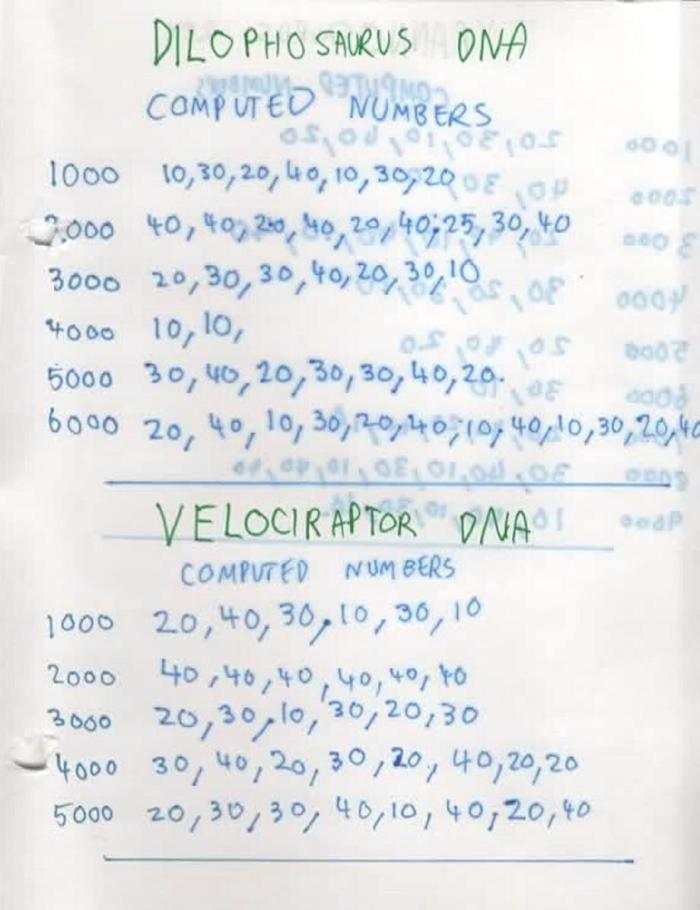 DILOPHOSAURUS DNA
COMPUTED NUMBERS
1000 10,30,20,40,10,30,20
2000 40,40,20,40,20,40,25,30,40
3000 20,30,30,40,20,30,10
4000 10,10,
5000 30,40,20,30,30,40,20.
6000 20, 40, 10, 30, 20, 40, 10, 40, 10, 30, 20, 40
VELOCIRAPTOR DNA
COMPUTED NUMBERS
1000 20,40,30,10,30,10
2000 40,40,40,40,40,40
3000 20,30,10,30,20,30
4000 30,40,20,30,20, 40,20,20
5000 20,30,30,40,10,40,20,40